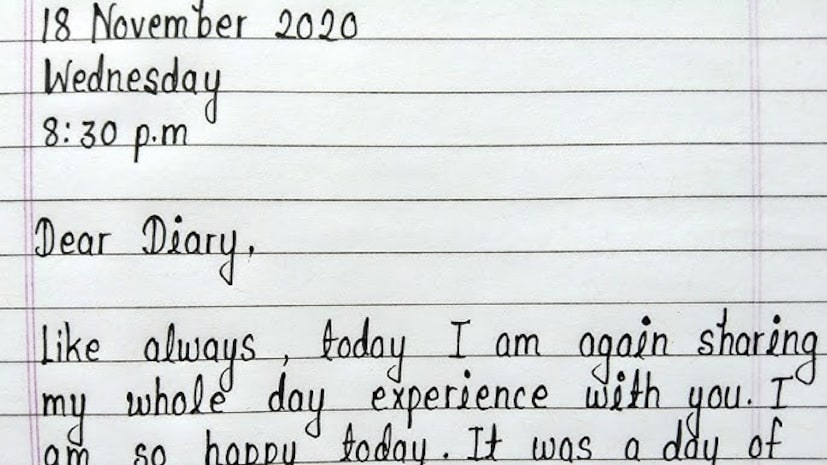 18 November 2020
Wednesday
8:30 p.m
Dear Diary,
Like always, today I am again sharing
my whole day experience with you. I
am so happy today. It was a day of